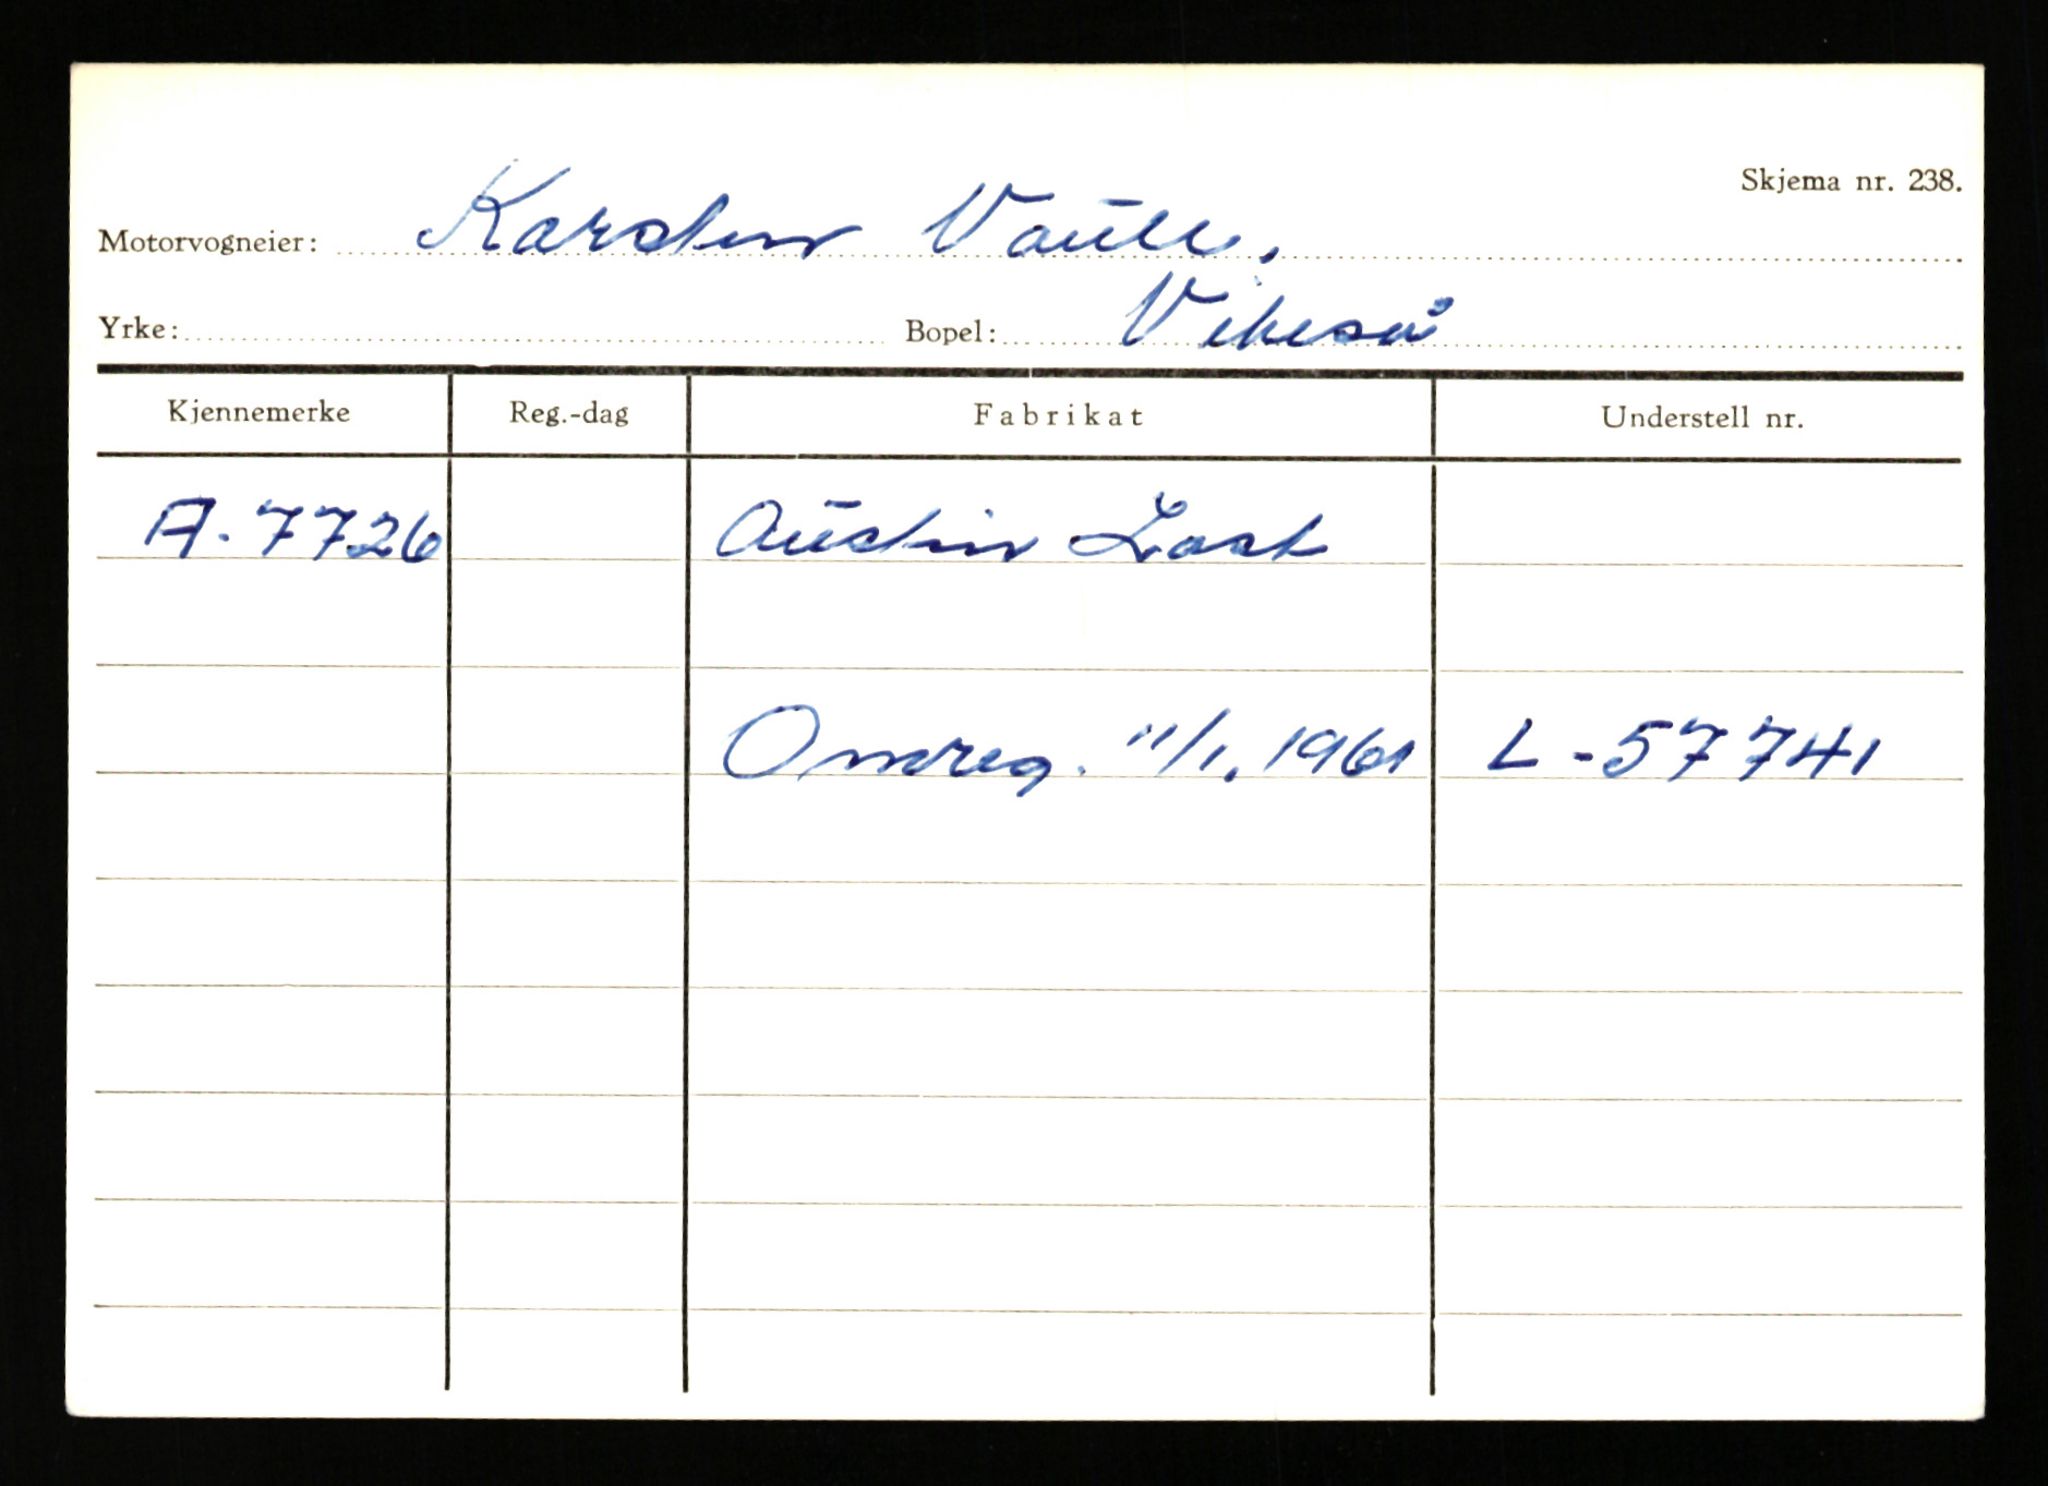 Skjema nr. 238.
Motorvogneier: Karsten Vaule,
Yrke: Bopel: Vikeså
Kjennemerke Reg.-dag Fabrikat Understell nr.
A. 7726 Austin Last
Omreg. 11/1. 1961 L-57741